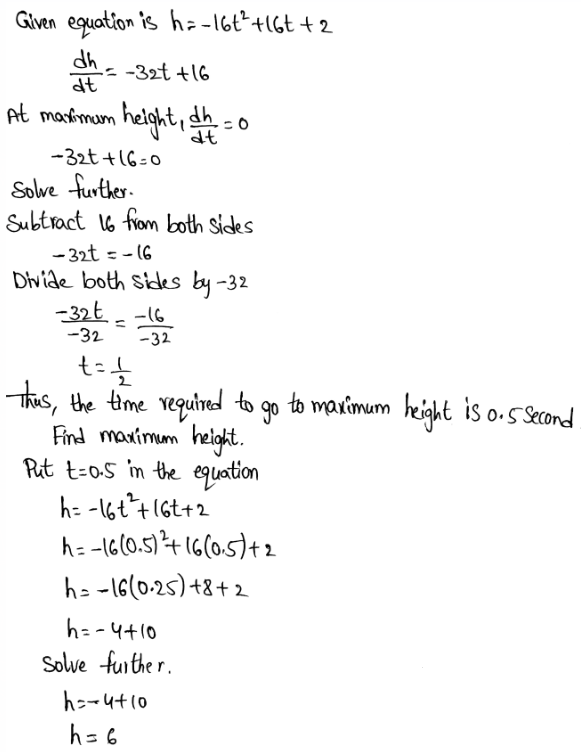 Given equation is h = -16t² + 16t + 2
dh/dt = -32t + 16
At maximum height, dh/dt = 0
-32t + 16 = 0
Solve further.
Subtract 16 from both sides
-32t = -16
Divide both sides by -32
-32t/-32 = -16/-32
t = 1/2
Thus, the time required to go to maximum height is 0.5 second
Find maximum height.
Put t = 0.5 in the equation
h = -16t² + 16t + 2
h = -16(0.5)² + 16(0.5) + 2
h = -16(0.25) + 8 + 2
h = -4 + 10
Solve further.
h = -4 + 10
h = 6